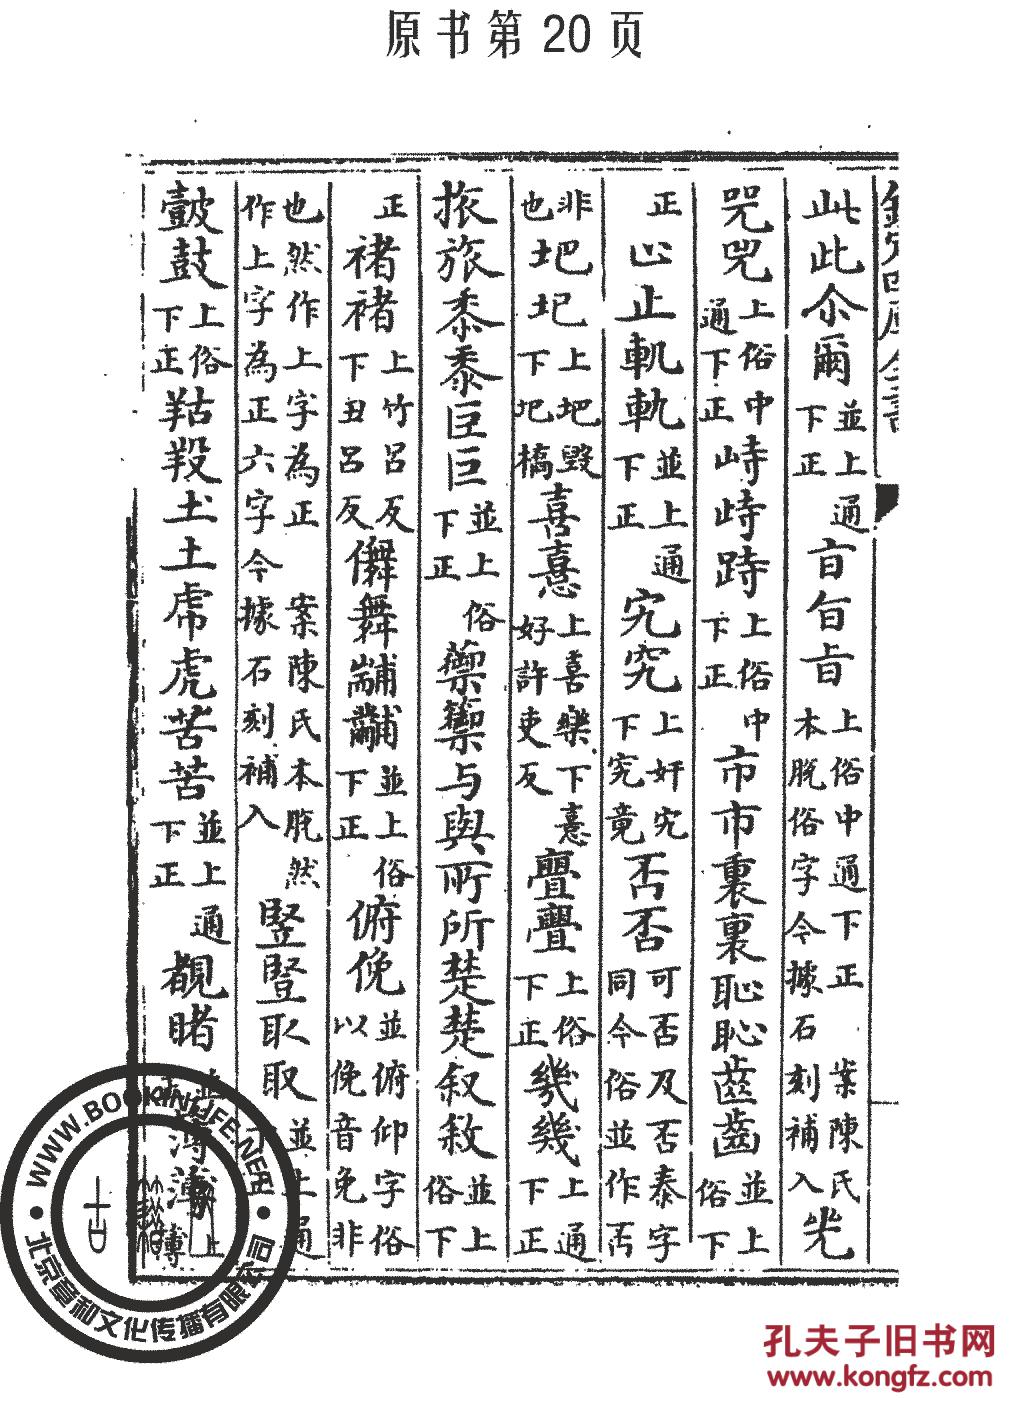 原书第20页
此 此 尒 爾 並上通下正 㫖 旨 㫖 上俗中通下正 本脫俗字今據石刻補入 案陳氏 𠒋
咒 咒 上俗中通下正 峙 峙 跱 上俗中下正 市 市 裏 裏 恥 恥 齒 齒 並上俗下
正 止 止 軌 軌 並上通下正 宄 究 上奸宄下究竟 否 否 可否及否泰字同今俗並作否
非也 圯 圮 上圯毀下圯橋 喜 憙 上喜樂下憙好許吏反 亹 亹 上俗下正 幾 幾 上通下正
旅 旅 黍 黍 巨 巨 並上俗下正 禦 籞 与 與 所 所 楚 楚 叙 敘 並上俗下
正 禇 褚 上竹呂反下丑呂反 儛 舞 黼 黼 並上俗下正 俯 俛 並俯仰字俗以俛音免非
也然作上字為正 作上字為正六字今據石刻補入 案陳氏本脫然 竪 豎 取 取 並上通下正
鼓 鼓 上俗下正 羖 羖 土 土 虎 虎 苦 苦 並上通下正 覩 睹
WWW.BOOKINLIFE.NET
北京章和文化传播有限公司
孔夫子旧书网
www.kongfz.com